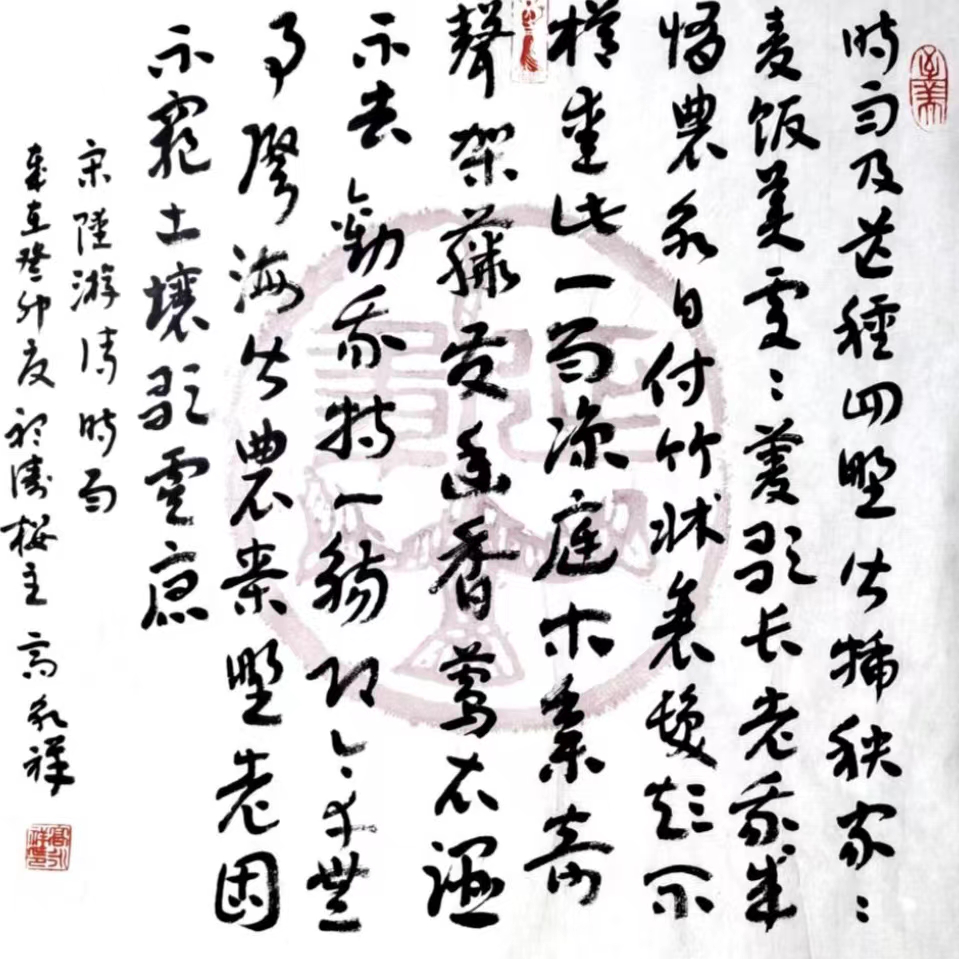 時雨及芒種四野皆插秧家〻
麥飯美處〻菱歌長老我成
惰農永日付竹牀衰髮短不
櫛愛此一雨涼庭木集奇
聲架藤發幽香鶯衣濕
不去勸我持一觴即今幸無
事際海皆農桑野老固
不窮土壤歌虞唐
宋陸游詩時雨
歲在癸卯夏濤樓主高永祥